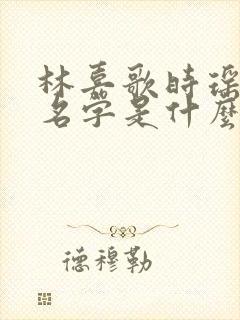 林嘉歌时瑶
名字是什麼
德穆勒